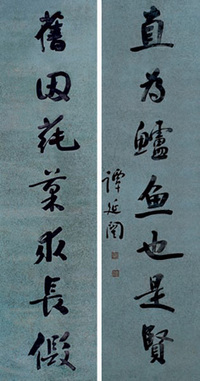 直為鱸魚也是賢
譚延闓
舊因蒓菜求長假